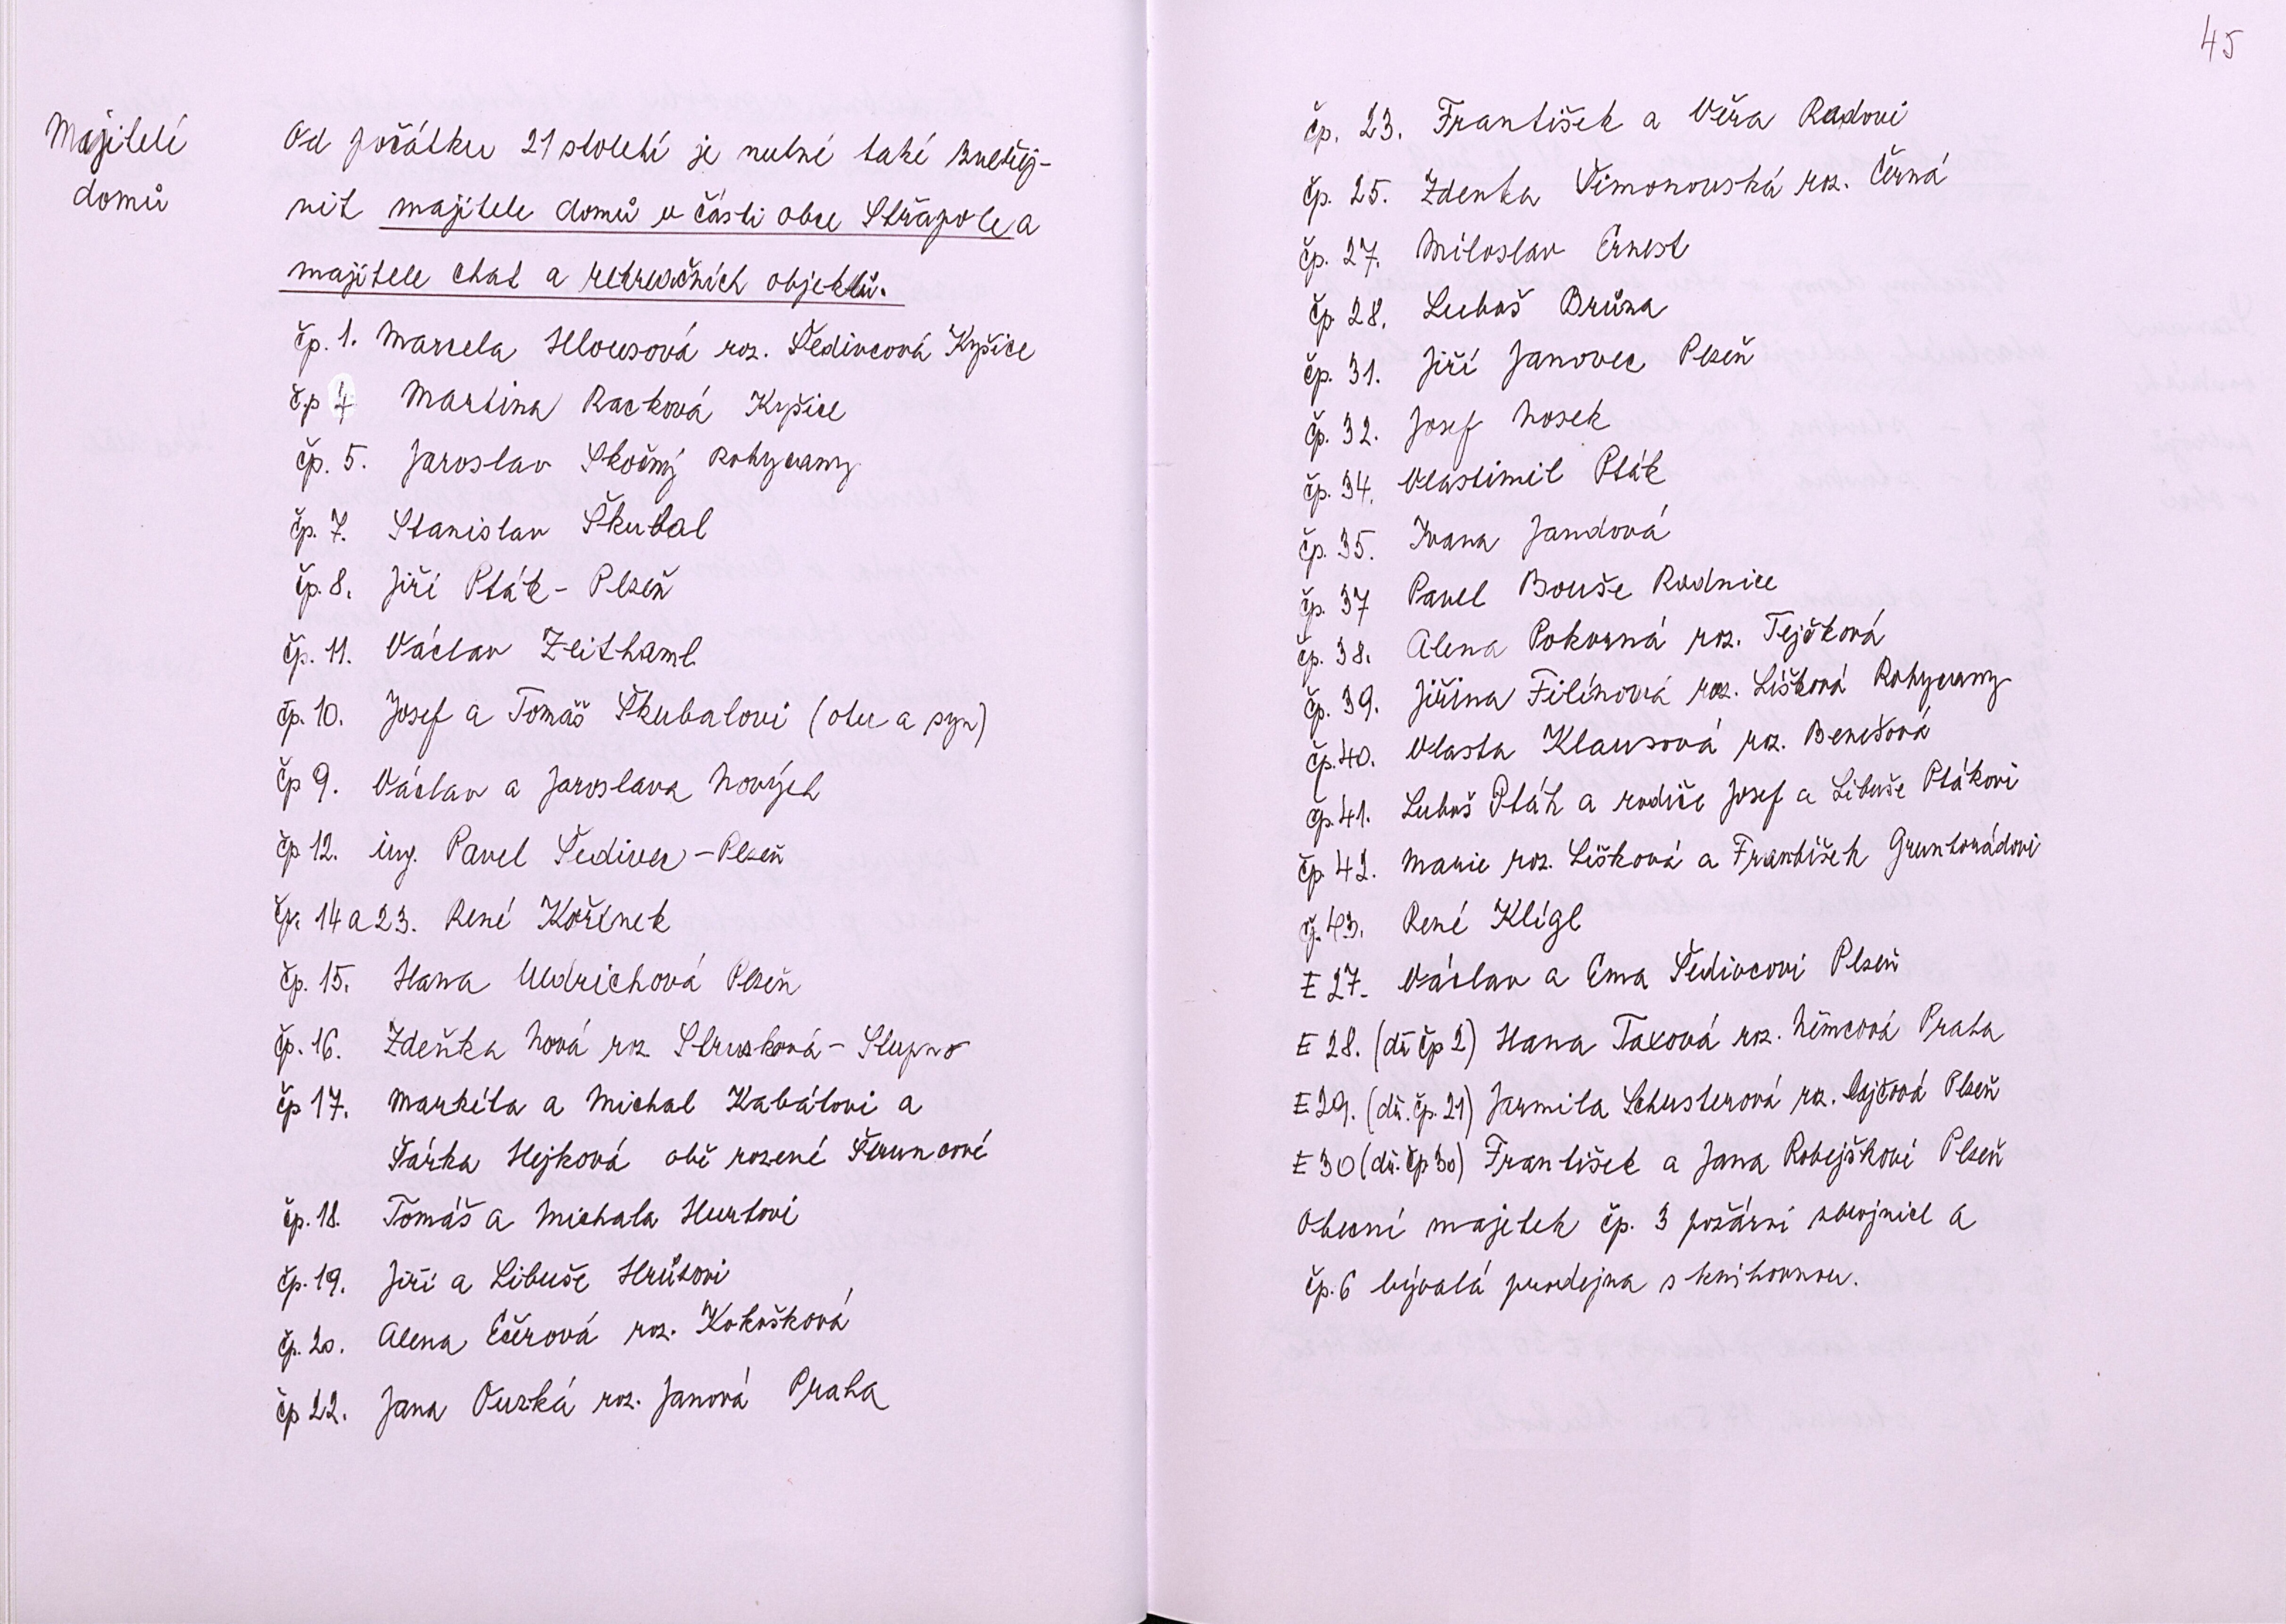 Majitelé
domů
Od počátku 21 století je nutné také zveřej-
nit majitele domů v části obce Střapole a
majitele chat a rekreačních objektů.
čp. 1. Marcela Hlousová roz. Šedivcová Kyšice
č.p 4 Martina Racková Kyšice
čp. 5. Jaroslav Skočný Rokycany
čp. 7. Stanislav Škubal
čp. 8. Jiří Pták - Plzeň
čp. 11. Václav Zeithaml
čp. 10. Josef a Tomáš Škubalovi (otec a syn)
čp 9. Václav a Jaroslava Nových
čp 12. ing. Pavel Šedivec - Plzeň
čp. 14 a 23. René Kořínek
čp. 15. Hana Uldrichová Plzeň
čp. 16. Zdeňka Nová roz Strusková - Stupno
čp 17. Markéta a Michal Kabátovi a
Šárka Hejková obě rozené Šeruncové
čp. 18. Tomáš a Michala Hurtovi
čp. 19. Jiří a Libuše Hrůzovi
čp. 20. Alena Ečerová roz. Kokošková
čp 22. Jana Ouzká roz. Janová Praha
45
čp. 23. František a Věra Radovi
čp. 25. Zdenka Šimonovská roz. Černá
čp. 27. Miloslav Ernest
čp. 28. Luboš Brůza
čp. 31. Jiří Janovec Plzeň
čp. 32. Josef Nosek
čp. 34. Vlastimil Pták
čp. 35. Ivana Jandová
čp. 37 Pavel Bouše Radnice
čp. 38. Alena Pokorná roz. Tejčková
čp. 39. Jiřina Filínová roz. Lišková Rokycany
čp. 40. Vlasta Klausová roz. Benešová
čp. 41. Luboš Pták a rodiče Josef a Libuše Ptákovi
čp. 42. Marie roz. Lišková a František Gruntorádovi
č. 43. René Klígl
E 27. Václav a Ema Šedivcovi Plzeň
E 28. (dř čp 2) Hana Taxová roz. Němcová Praha
E 29. (dř. čp. 21) Jarmila Schusterová roz. Lojčová Plzeň
E 30 (dř. čp 30) František a Jana Robejškovi Plzeň
Obecní majetek čp. 3 požární zbrojnice a
čp. 6 bývalá prodejna s knihovnou.